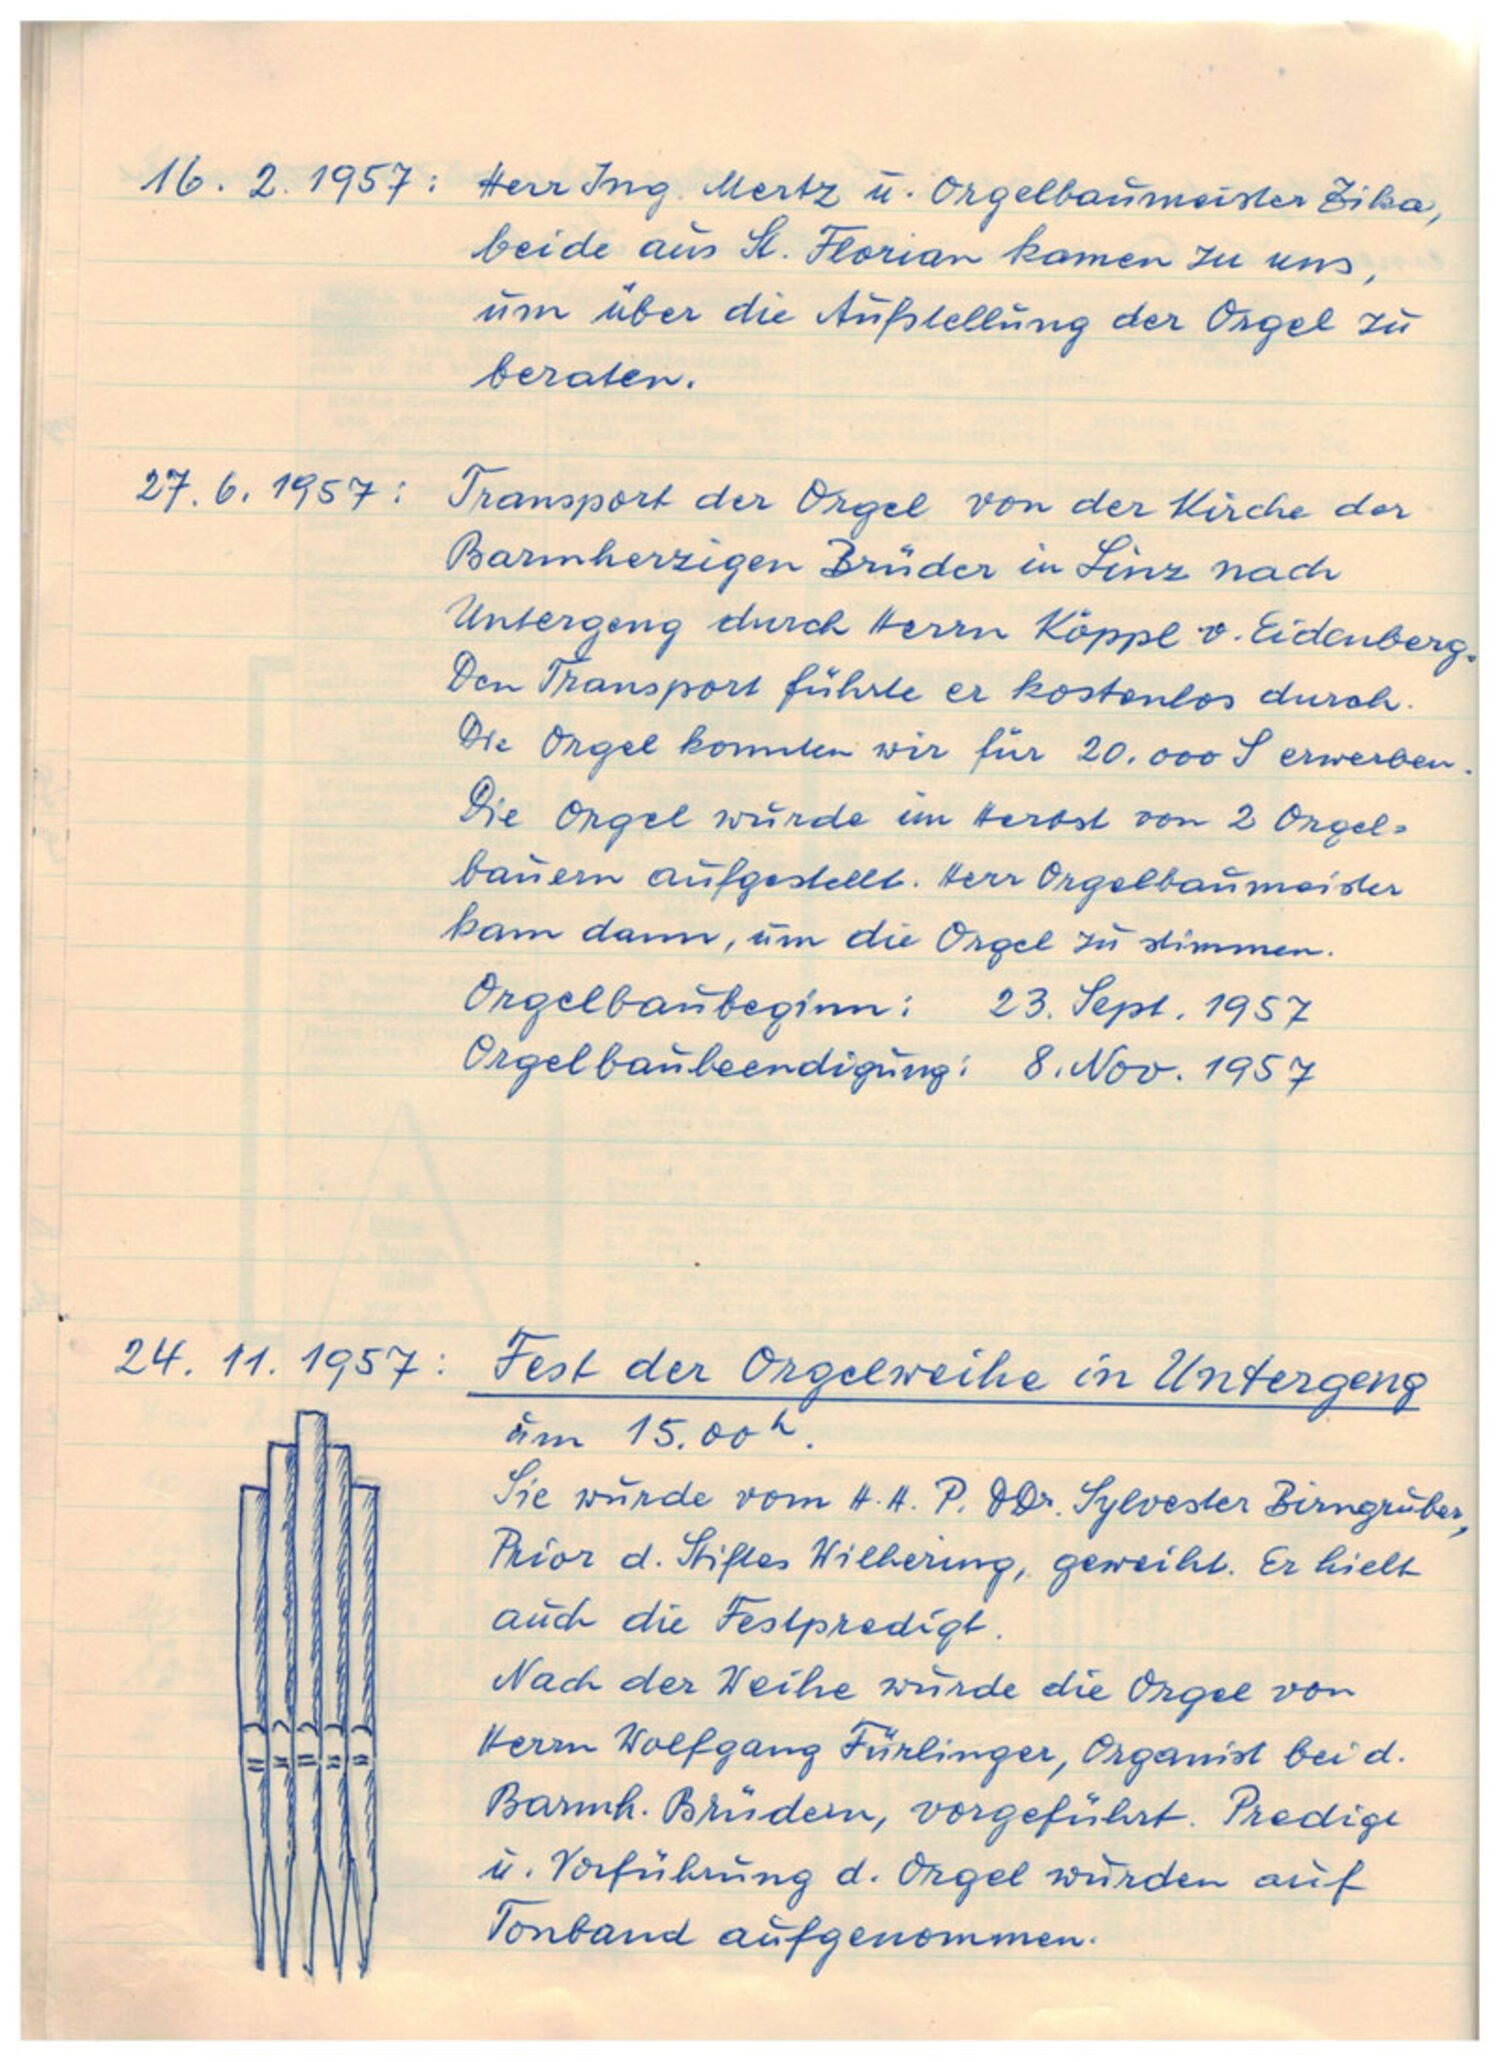 16. 2. 1957: Herr Ing. Mertz u. Orgelbaumeister Zika,
beide aus St. Florian kamen zu uns,
um über die Aufstellung der Orgel zu
beraten.
27. 6. 1957: Transport der Orgel von der Kirche der
Barmherzigen Brüder in Linz nach
Untergeng durch Herrn Köppl v. Eidenberg.
Den Transport führte er kostenlos durch.
Die Orgel konnten wir für 20.000 S erwerben.
Die Orgel wurde im Herbst von 2 Orgel=
bauern aufgestellt. Herr Orgelbaumeister
kam dann, um die Orgel zu stimmen.
Orgelbaubeginn: 23. Sept. 1957
Orgelbaubeendigung: 8. Nov. 1957
24. 11. 1957: Fest der Orgelweihe in Untergeng
um 15.00 h.
Sie wurde vom H. H. P. DDr. Sylvester Birngruber,
Prior d. Stiftes Wilhering, geweiht. Er hielt
auch die Festpredigt.
Nach der Weihe wurde die Orgel von
Herrn Wolfgang Fürlinger, Organist bei d.
Barmh. Brüdern, vorgeführt. Predigt
u. Vorführung d. Orgel wurden auf
Tonband aufgenommen.